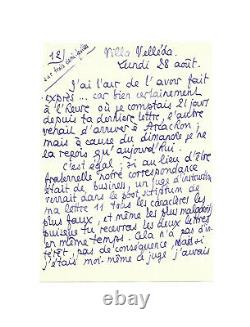 18/
sur trois cent treize
Villa Velléda.
Lundi 28 août.
J'ai l'air de l'avoir fait
exprès... car bien certainement
à l'heure où je comptais 21 jours
depuis ta dernière lettre, l'autre
venait d'arriver à Arcachon;
mais à cause du dimanche je ne
la reçois qu'aujourd'hui.
C'est égal; si au lieu d'être
fraternelle notre correspondance
était de business, un juge d'instruction
verrait dans le post scriptum de
ma lettre 11 tous les caractères les
plus faux, et même les plus maladroits
puisque tu recevras les deux lettres
en même temps. Cela n'a pas d'in-
térêt, pas de conséquence, mais si
j'étais moi-même à juge j'aurais
© 123-hemnes